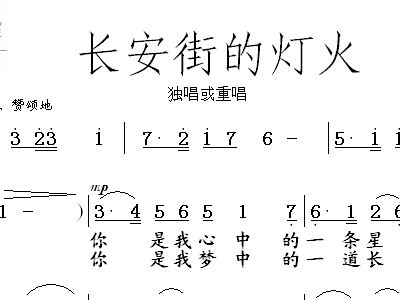 长安街的灯火
独唱或重唱
赞颂地
3 23 1 | 7· 2 1 7 6 - | 5· 1 1
1 - ) | 3· 4 5 6 5 1 7 | 6· 1 2 6
mp
你 是我心中 的一 条星
你 是我梦中 的一 道长